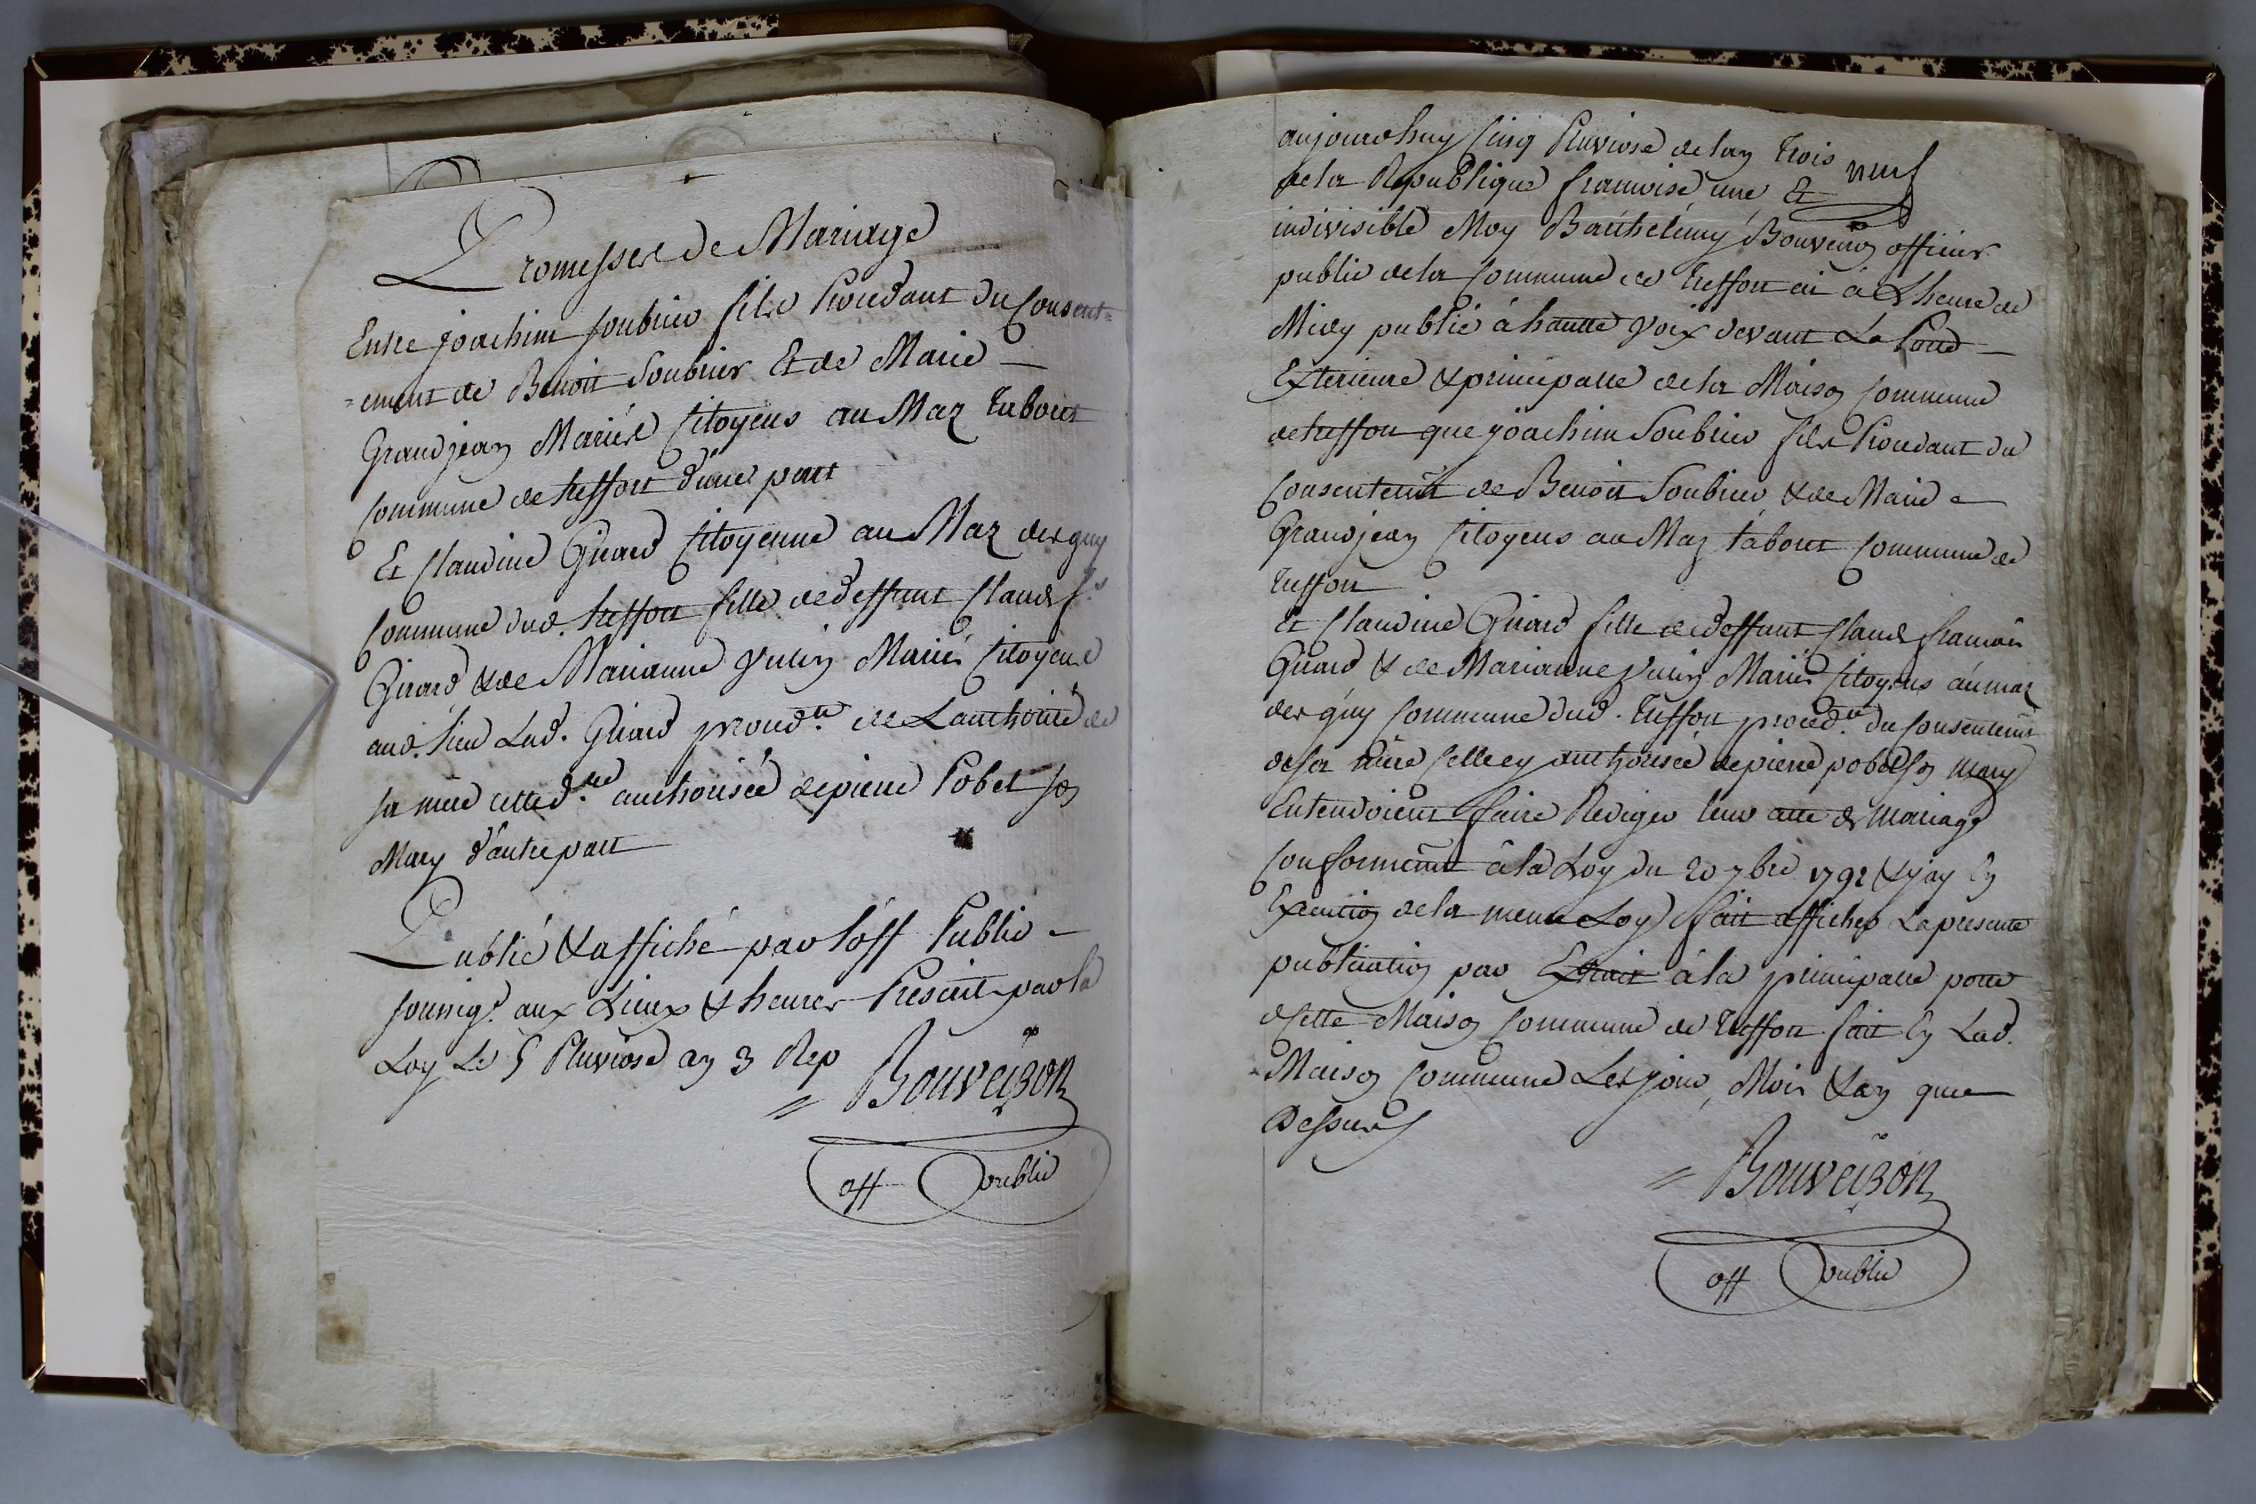 Promesses de Mariage
Entre joachim soubrier fils Procedant du Consent=
=ement de Benoit Soubrier Et de Marie
Grandjean Mariés Citoyens au Maz Tabouret
Commune de treffort d'une part
Et Claudine Girard Citoyenne au Maz des guy
Commune dud. treffort fille de deffunt Claude f.s
Girard & de Marianne Vulin Mariés Citoyens
aud. lieu Lad. Girard proced.te de Lauthorité de
sa mere cette d.ere authorisée de pierre Pobel son
Mary d'autre part
Publié & affiché par l'off Public
soussig.é aux Lieux & heures Prescrits par la
Loy Le 5 Pluviose an 3 Rep
Bouveiron
off Public
neuf
aujourdhuy Cinq Pluviose de lan Trois
de la Republique francoise une Et
indivisible Moy Barthelemy Bouveiron officier
public de la Commune de treffort ai à Lheure de
Midy publié à hautte Voix devant La Porte
Exterieure & principalle de la Maison Commune
de treffort que joachim Soubrier fils Procedant du
Consentem̃t de Benoit Soubrier & de Marie
Grandjean Citoyens au Maz tabouret Commune de
treffort
et Claudine Girard fille de deffunt Claude francois
Girard & de Marianne Vulin Mariés Citoyens au maz
des guy Commune dud. treffort proced.te du Consentem̃t
de sa Mere Celle cy authorisée de pierre pobel son Mary
Entendoient faire Rediger leur acte de Mariage
Conformem̃t à la Loy du 20 7bre 1792 & j'ay En
Execution de la meme Loy fait afficher La presente
publication par Extrait à la principalle porte
de Cette Maison Commune de treffort fait En Lad.
Maison Commune Les jour, Mois & an que
Dessus
Bouveiron
off Public